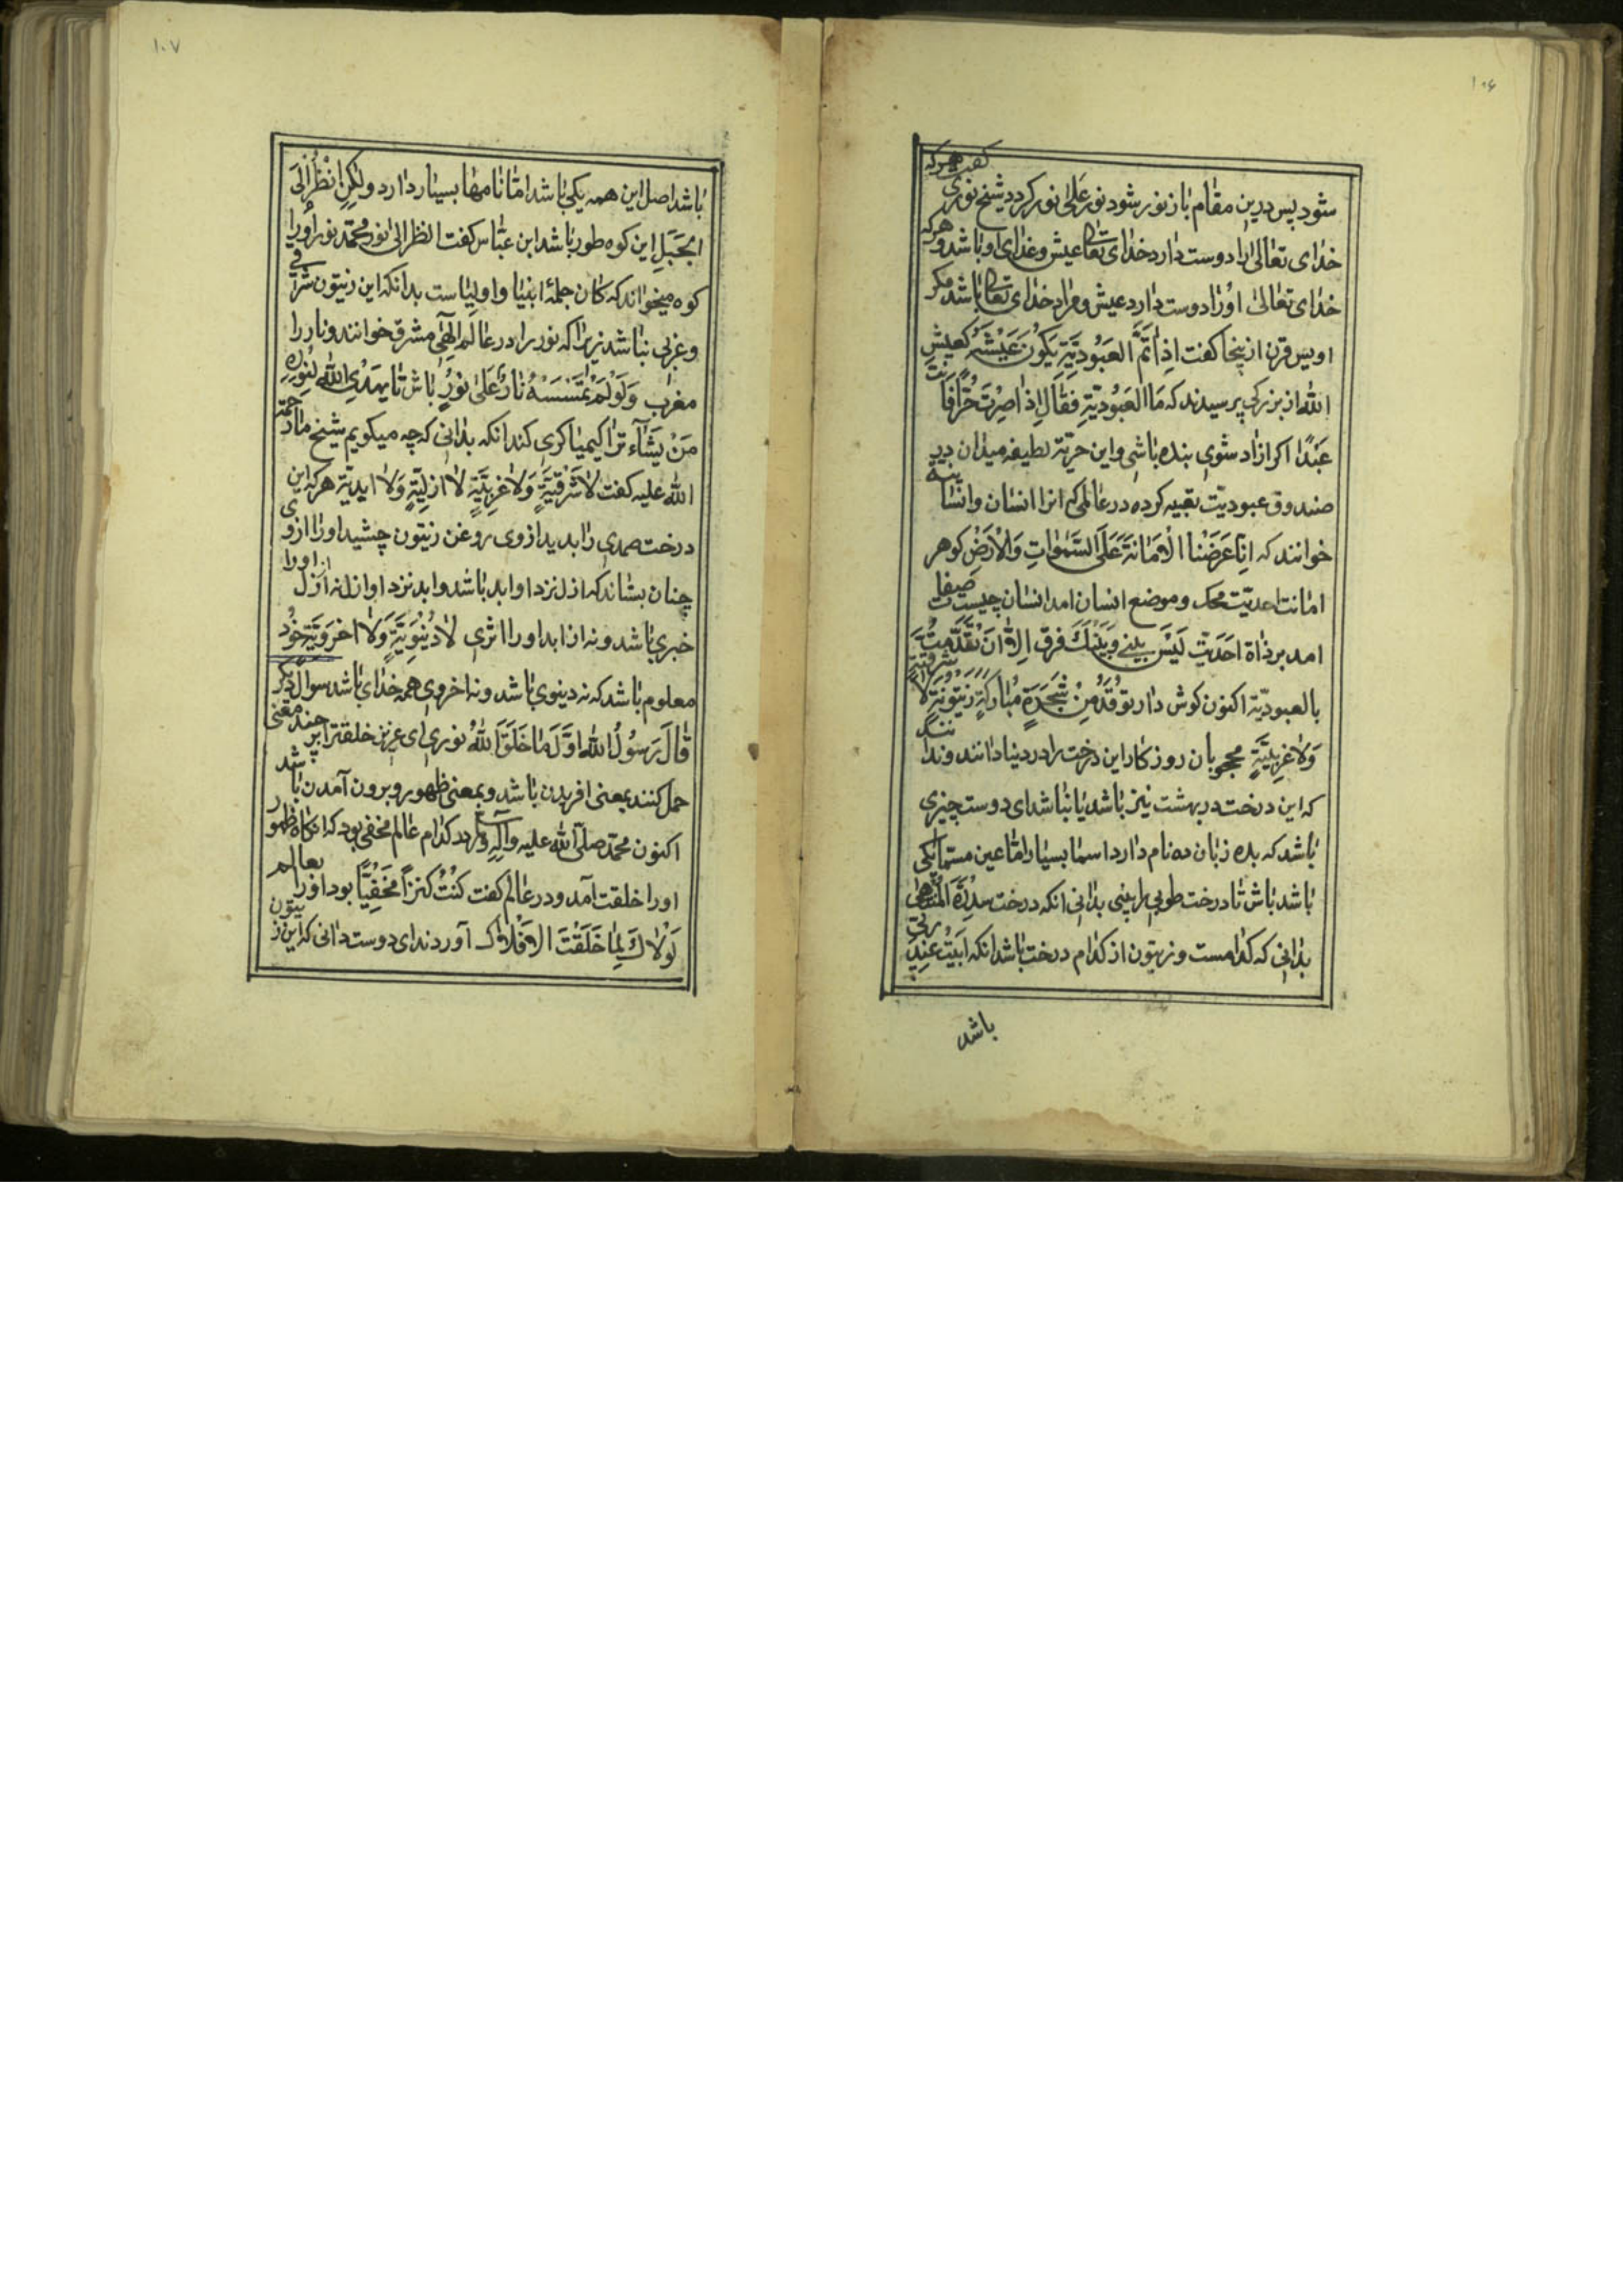 ۱۰۶
شود پس درین مقام باز نور شود نور علی نور کردد شیخ نوری گفت هرکه
خدای تعالی را دوست دارد خدای تعا عیش و غذای او باشد و هرکه
خدای تعالی اورا دوست دارد عیش و مراد خدای تعا باشد مکر
اویس قرن ازینجا کفت اِذٰا تَمَّ العَبُودِیَّةِ یَکُونُ عَیْشَهُ کَعَیشِ
الله از بزرکی پرسیدند که مَا العَبُودِیَّةِ فَقَالَ اِذٰا صِرْتَ حُرًّا فَانتَ
عَبْدًا اکر ازاد شوی بنده باشی و این حرّیّة لطیفه میدان در
صندوق عبودیّت تعبیه کرده در عالمی که انرا انسان و انسانیة
خوانند که اِنّٰا عَرَضْنَا الْاَمٰانَةَ عَلَی السَّمٰوٰاتِ وَالْاَرْضِ کوهر
امانت احدیّت محک و موضع انسان امد انسان چیست صفات
امد بر ذاة احدیت لَیْسَ بَیْنی وَ بَیْنَکَ فرق اِلّٰا اَنْ تَقَدَّمْتُ
بالعبودیّة اکنون کوش دار توقَدُ مِنْ شَجَرَةٍ مُبٰارَکَةٍ زَیْتُونَةٍ لٰا شرقیّة
وَلٰا غَرْبِیَّةٍ محجوبان روزکار این درخت را در دنیا دانند و ندانند
که این درخت در بهشت نیز باشد یا نباشد ای دوست چیزی
باشد که بده زبان ده نام دارد اسما بسیار امّا عین مسمّا یکی
باشد باش تا درخت طوبی را ببینی بدانی انکه درخت سِدْرَةِ الْمُنْتَهیٰ
بدانی که کدامست و زیتون از کدام درخت باشد انکه ابَیْتُ عِنْدَ ربی
باشد
۱۰۷
باشد اصل این همه یکی باشد امّا نامها بسیار دارد ولٰکِنِ انْظُرْ اِلَی
الْجَبَلِ این کوه طور باشد ابن عبّاس کفت انظر الیٰ نور محمّد نور اورا
کوه میخواند که کان جملهٔ انبیا و اولیاست بدانکه این زیتون شرقی
و غربی نباشد زیرا که نور را در عالم الٰهی مشرق خوانند و نار را
مغرب وَلَوْلَمْ تَمْسَسْهُ نٰارٌ عَلیٰ نُورٍ باش تا یَهْدِی اللهُ لِنُورِهِ
مَنْ یَشٰاءُ ترا کیمیا کری کند انکه بدانی که چه میکویم شیخ ما رحمة
الله علیه کفت لٰا شَرْقِیَّةٍ وَلٰا غَرْبِیَّةٍ لٰا ازلِیّةٍ وَلٰا ابدیّة هرکه این
درخت صمدی را بدید از وی روغن زیتون چشید اورا ازوی
چنان بستاند که ازل نزد او ابد باشد و ابد نزد او ازل نه از ازل اورا
خبری باشد و نه از ابد اورا اثری لٰا دُنْیَوِیّةٍ وَلٰا اخْرَوِیَّةٍ خود
معلوم باشد که نه دینوی باشد و نه اخروی همه خدای باشد سوال دیکر
قٰالَ رَسُولُ اللهِ اوَّلَ مٰا خَلَقَ اللهُ نوری ای عزیز خلقت را بر چند معنی
حمل کنند بمعنی افریدن باشد و بمعنی ظهور و برون آمدن باشد
اکنون محمّد صلّی الله علیه وآلِهِ در کدام عالم مخفی بود که انکاه ظهور
اورا خلقت آمد و در عالم کفت کُنْتُ کَنزاً مَخْفِیًّا بود اورا بعالم
لَوْلٰاکَ لِمٰا خَلَقْتُ الْاَفْلٰاک آوردند ای دوست دانی که این زیتون